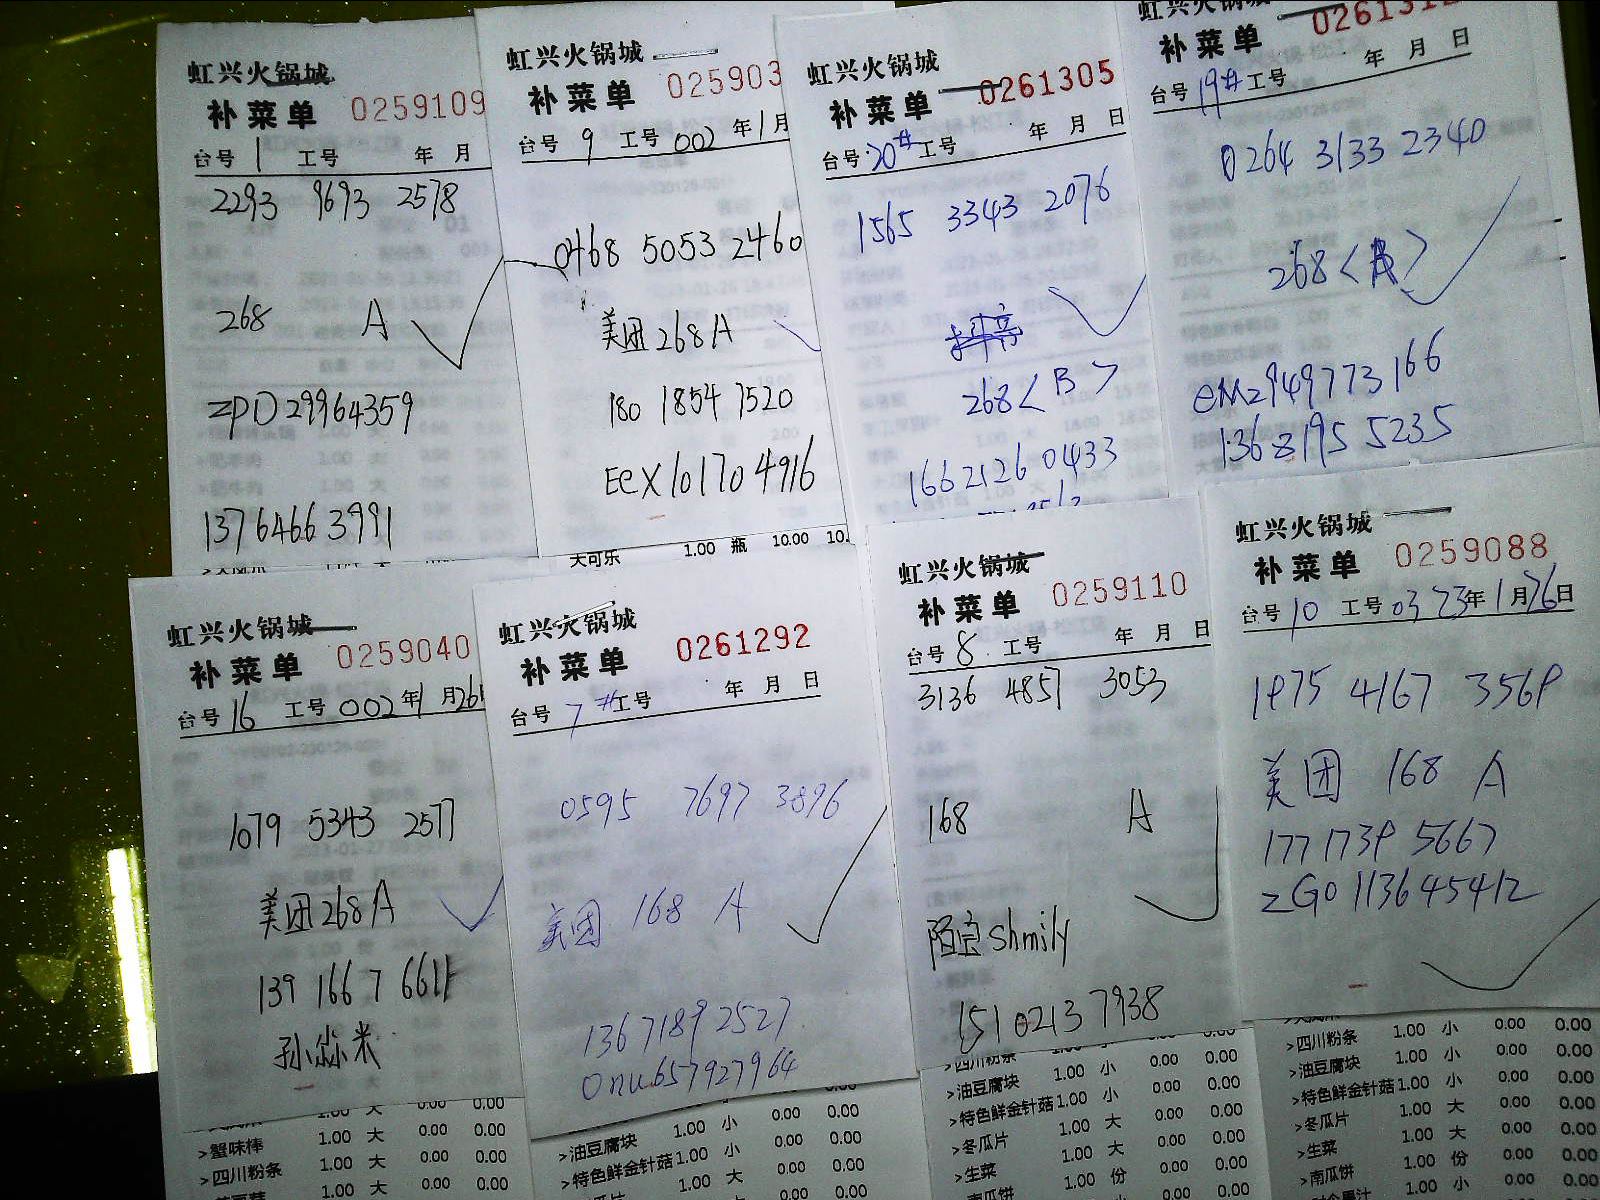 虹兴火锅城
补菜单 0259109
台号 1 工号 年 月
2293 9693 2578
268 A
ZPD29964359
1376466 3991
虹兴火锅城
补菜单 025903
台号 9 工号 002 年 1 月
0468 5053 2460
美团268A
180 1854 7520
EeX101704916
大可乐 1.00 瓶 10.00 10.
虹兴火锅城
补菜单 0261305
台号 20# 工号 年 月 日
1565 3343 2076
268<B>
166 2126 0433
虹兴火锅城
补菜单
台号 19# 工号 年 月 日
0264 3133 2340
268<A>
eM2949773166
136 8195 5235
虹兴火锅城
补菜单 0259040
台号 16 工号 002 年 1 月 26
1079 5343 2577
美团268A
139 1667 6611
孙淼米
>蟹味棒 1.00 大 0.00 0.00
>四川粉条 1.00 大 0.00 0.00
1.00 大 0.00 0.00
虹兴火锅城
补菜单 0261292
台号 7# 工号 年 月 日
0595 7697 3896
美团 168 A
136 7189 2527
Onu657927964
>油豆腐块 1.00 小 0.00 0.00
>特色鲜金针菇 1.00 小 0.00 0.00
1.00 大 0.00 0.00
虹兴火锅城
补菜单 0259110
台号 8 工号 年 月 日
3136 4857 3053
168 A
陌宣shmily
151 0213 7938
>四川粉条 1.00 小 0.00 0.00
>油豆腐块 1.00 小 0.00 0.00
>特色鲜金针菇 1.00 小 0.00 0.00
>冬瓜片 1.00 大 0.00 0.00
>生菜 1.00 大 0.00 0.00
>南瓜饼 1.00 份 0.00 0.00
虹兴火锅城
补菜单 0259088
台号 10 工号 03 23年 1 月 26 日
1975 4167 3569
美团 168 A
177 1739 5667
ZGO113645412
>四川粉条 1.00 小 0.00 0.00
>油豆腐块 1.00 小 0.00 0.00
>特色鲜金针菇 1.00 小 0.00 0.00
>冬瓜片 1.00 大 0.00 0.00
>生菜 1.00 大 0.00 0.00
>南瓜饼 1.00 份 0.00 0.00